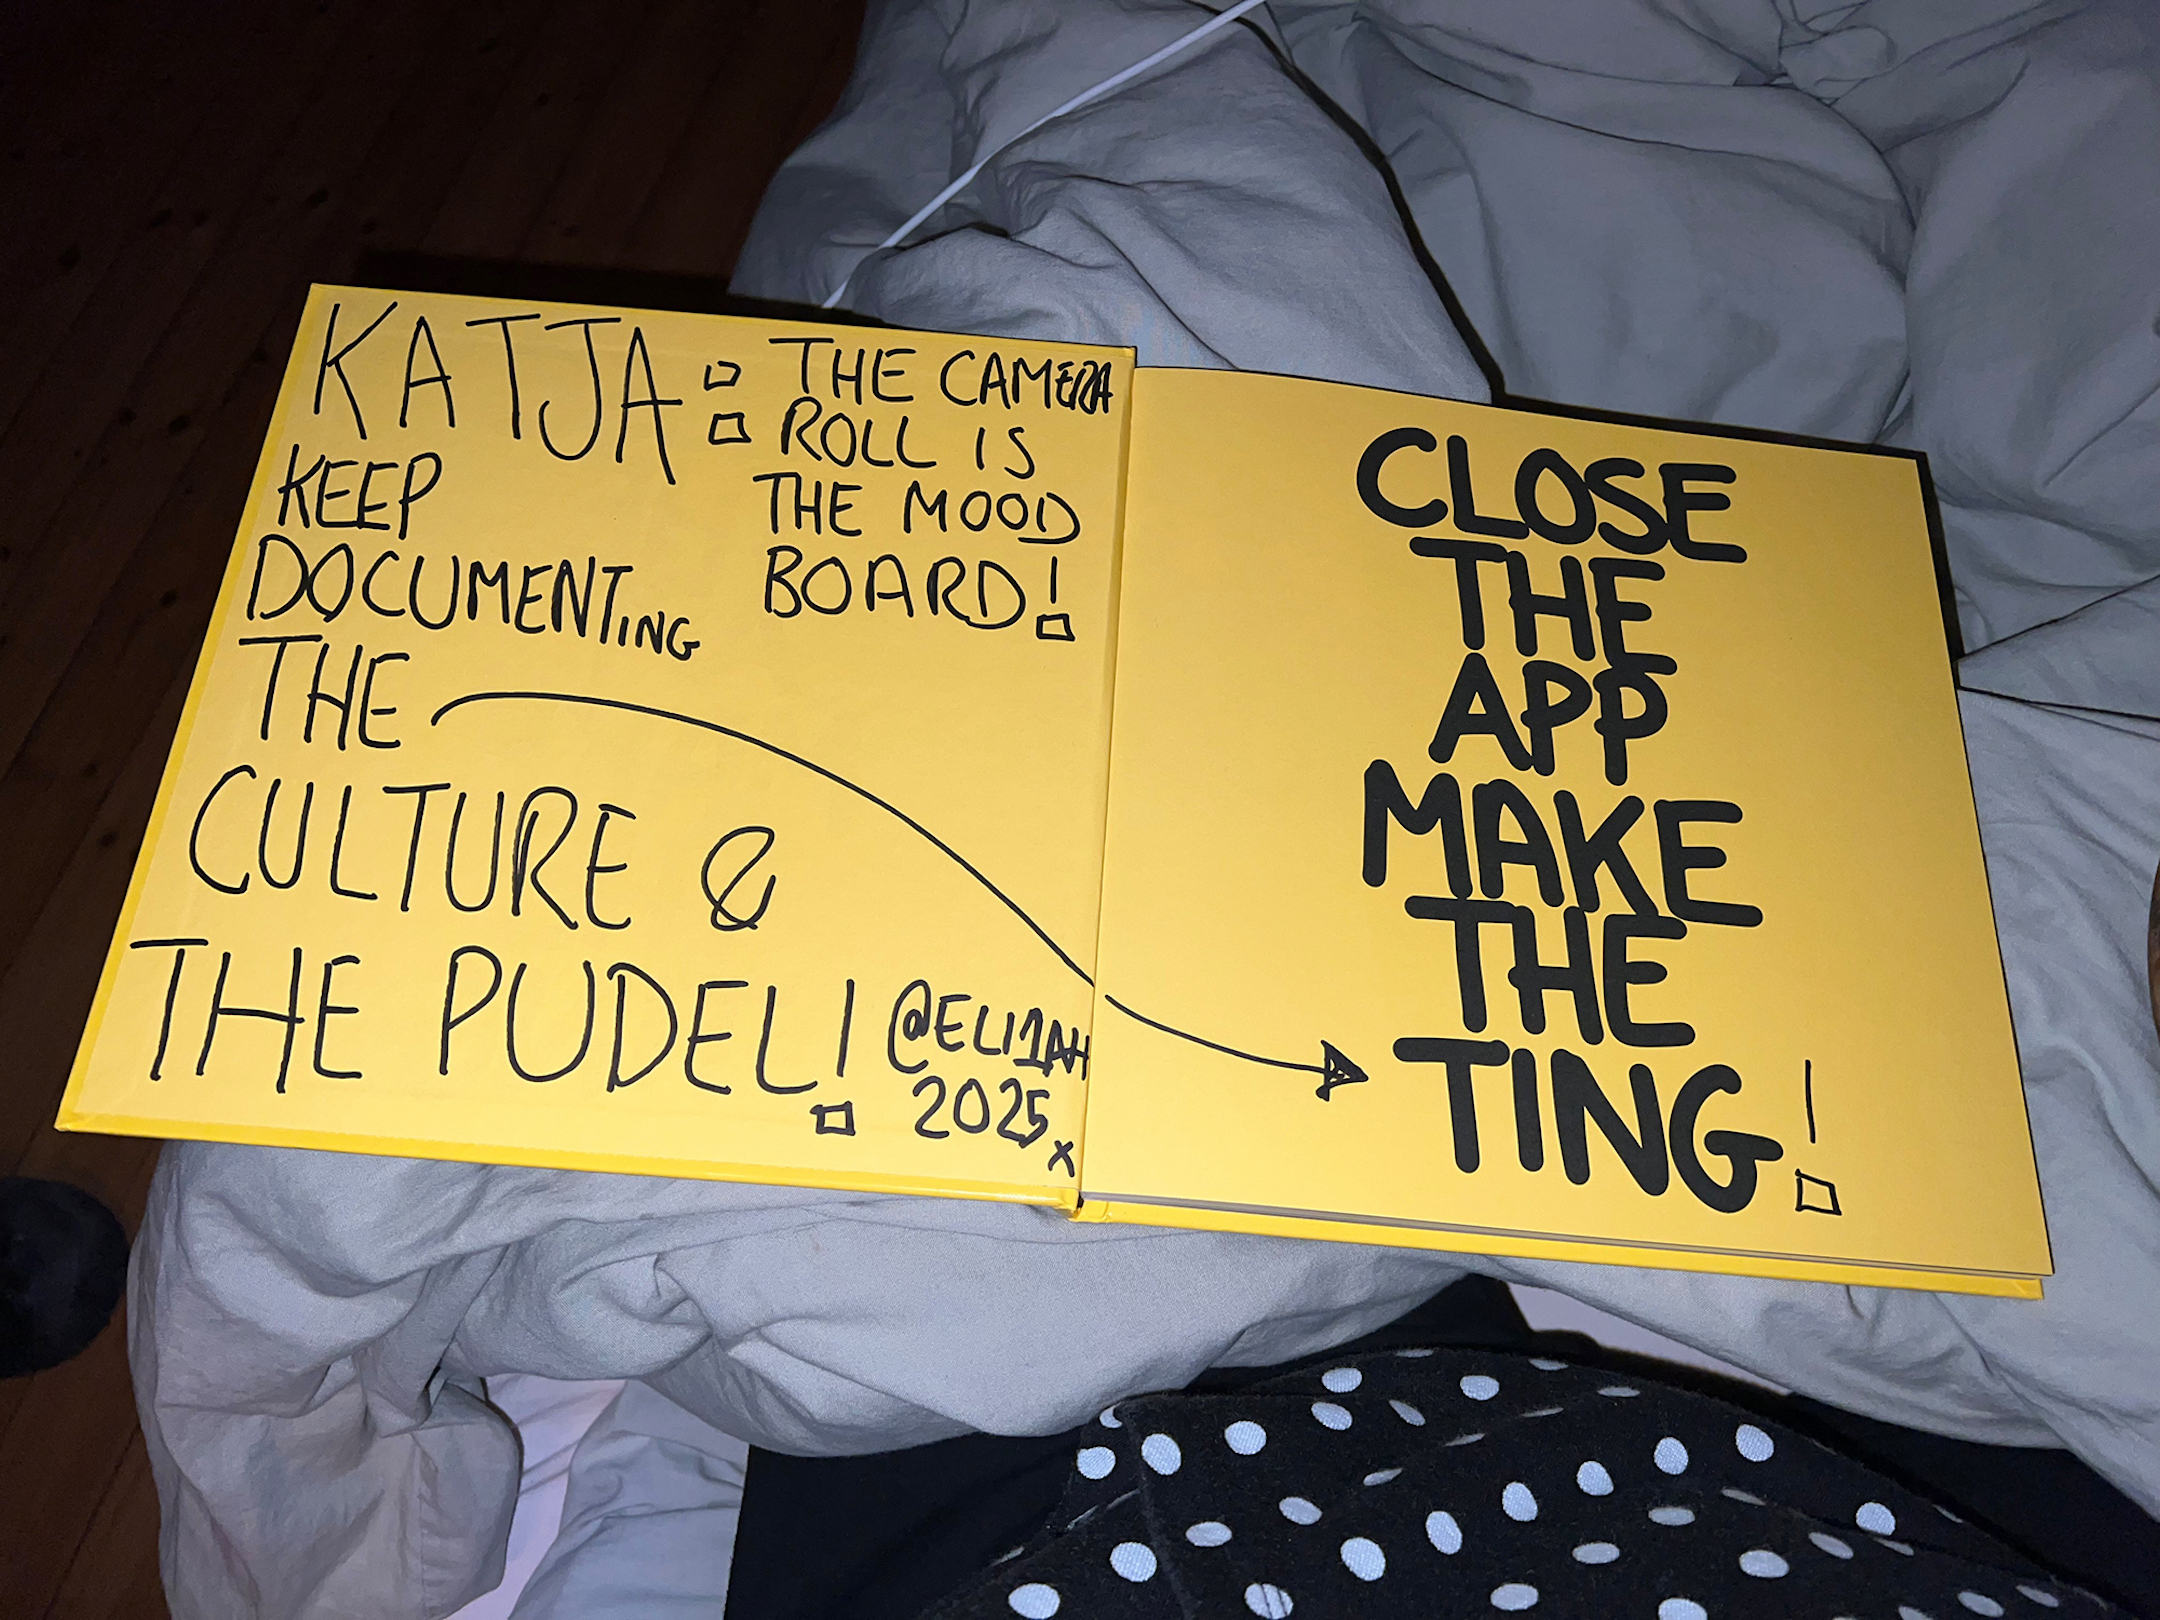 KATJA:
KEEP
DOCUMENTING
THE
CULTURE &
THE PUDEL!
THE CAMERA
ROLL IS
THE MOOD
BOARD!
@ELI1AH
2025
x
CLOSE
THE
APP
MAKE
THE
TING!